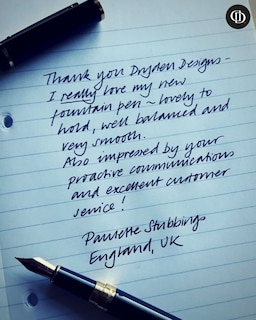 Thank you Dryden Designs -
I really love my new
fountain pen ~ lovely to
hold, well balanced and
very smooth.
Also impressed by your
proactive communications
and excellent customer
service!
Paulette Stubbings
England, UK